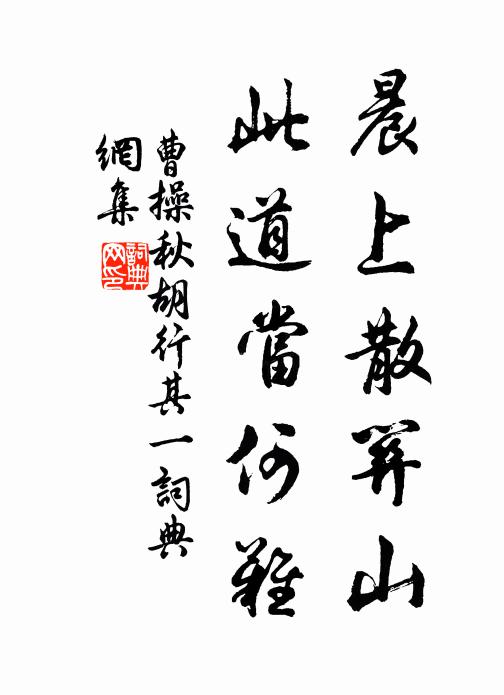 晨上散關山
此道當何難
曹操秋胡行其一詞典
網集
詞典网印